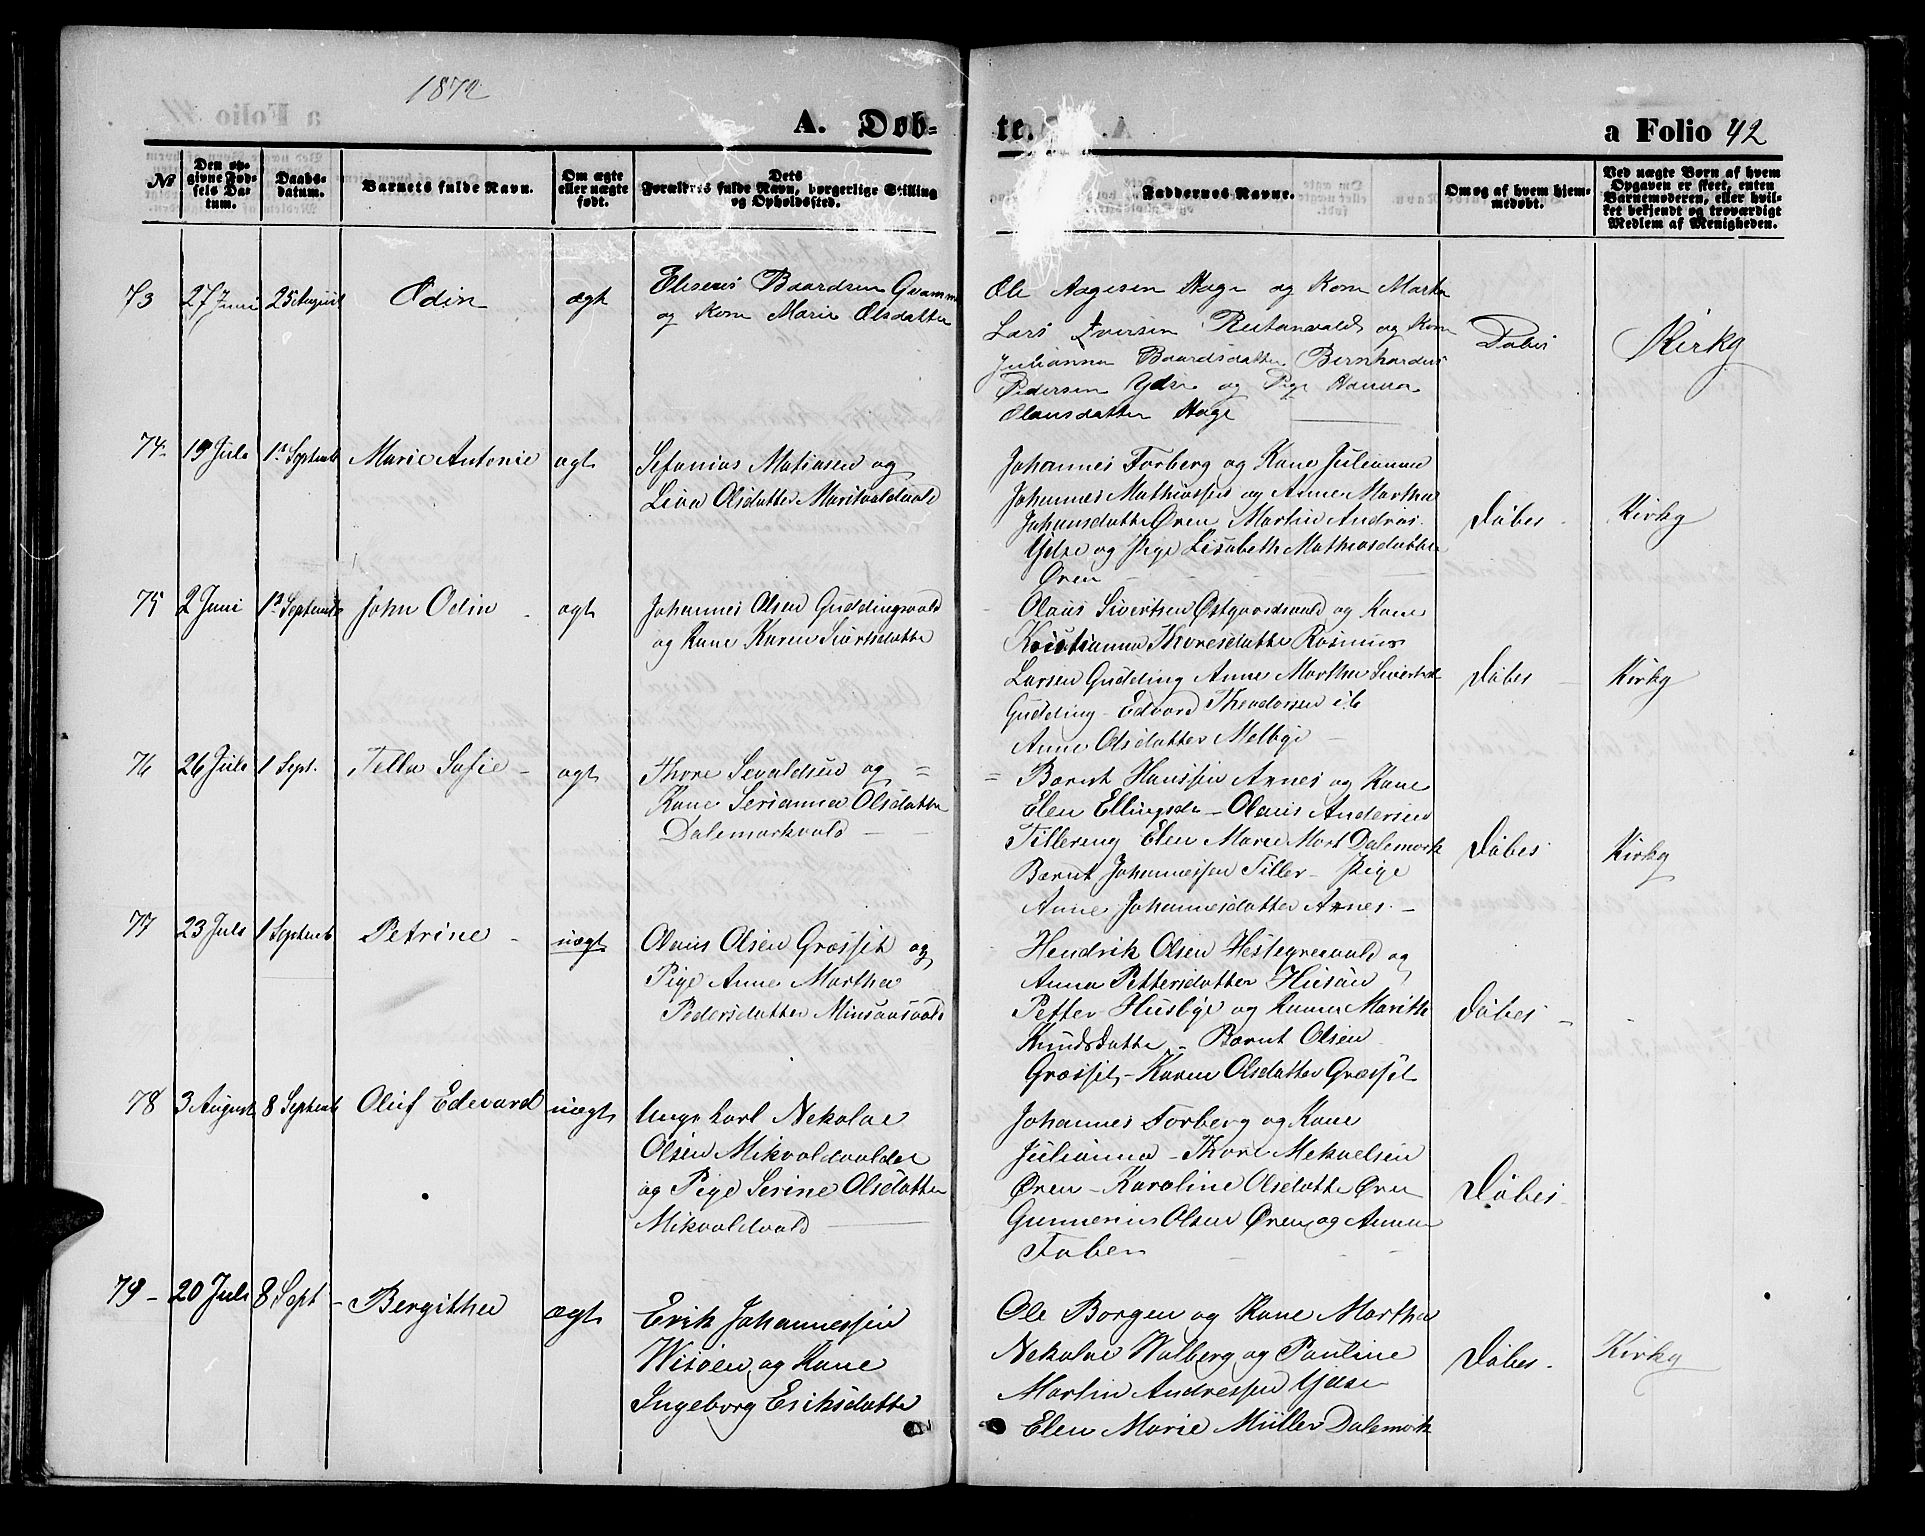 1872
A. Døb-
te.
a Folio 42
No
Den op-
givne Fød-
sels Da-
tum.
Daabs-
datum.
Barnets fulde Navn.
Om ægte
eller uægte
født.
Dets
Forældres fulde Navn, borgerlige Stilling
og Opholdssted.
Faddernes Navne.
Om og af hvem hjem-
medøbt.
Ved uægte Børn af hvem
Opgaven er skeet, enten
Barnemoderen, eller hvil-
ket bekjendt og troværdigt
Medlem af Menigheden.
73 27 Juni 25 August Odin ægt
Eliseus Baardsen Gvamm
og Kone Marie Olsdatter
Ole Aagesen Hage og Kone Martha
Lars Iversen og Kone
Julianna Baardsdatter Bernhardus
Pedersen Ydse og Pige Hanna
Olausdatter Hage
Døbes Kirky
74 19 Juli 1st Septemb Marie Antonie ægt
Sefanias Matiasen og
Lina Olsdatter Maritvoldvald
Johannes Forberg og Kone Julianna
Johannes Mathiassen og Anne Martha
Johansdatte Ören Martin Andreas
Ydse og Pige Lisabeth Mathiasdatter
Ören
Døbes Kirky
75 2 Juni 1st Septemb John Odin ægt
Johannes Olsen Guddingsvald
og Kone Karen Siurtsdatte
Olaus Sivertsen Østgaardsvald og Kone
Kristianna Thoresdatte Rasmus
Larsen Gudding Anne Martha Sivertsd
Gudding - Edvard Theodorsen ib
Anne Olsdatter Melbye
Døbes Kirky
76 26 Juli 1 Sept. Tella Sofie ægt
Thore Sevaldsen og =
Kone Serianna Olsdatte
Dalemarkvald
= Bernt Hanssen Arnes og Kone
Elen Ellingsda - Olaus Andersen
Tillereng Elen Marie Mart Dalemark
Bernt Johannessen Tiller - Pige
Anne Johannesdatter Arnes -
Døbes Kirky
77 23 Juli 1 Septemb Petrine uægt
Olaus Olsen Græsset og
Pige Anne Martha
Pedersdatter
Hendrik Olsen og
Anna Pettersdatter Husøien
Petter Husbye og Kunna Marith
Knudsdatte - Bernt Olsen
Græsset - Karen Olsdatter Græsset
Døbes -
78 3 August 8 Septemb Oluf Edevard uægt
Ungekarl Nekolae
Olsen Mikvoldvaldet
og Pige Serine Olsdatter
Mikvoldvald
Johannes Forberg og Kone
Julianna - Thore Mekaelsen
Øren - Karoline Olsdatte Øren
Gunnerius Olsen Øren og Anna
Faben
Døbes.
79 - 20 Juli 8 Sept - Bergithe ægt
Erik Johannessen
Wisøen og Kone
Ingeborg Eriksdatte
Ole Borgen og Kone Martha
Nekolae Walberg og Pauline
Martin Andressen Ydse
Elen Marie Müller Dalemark
Døbes. Kirky